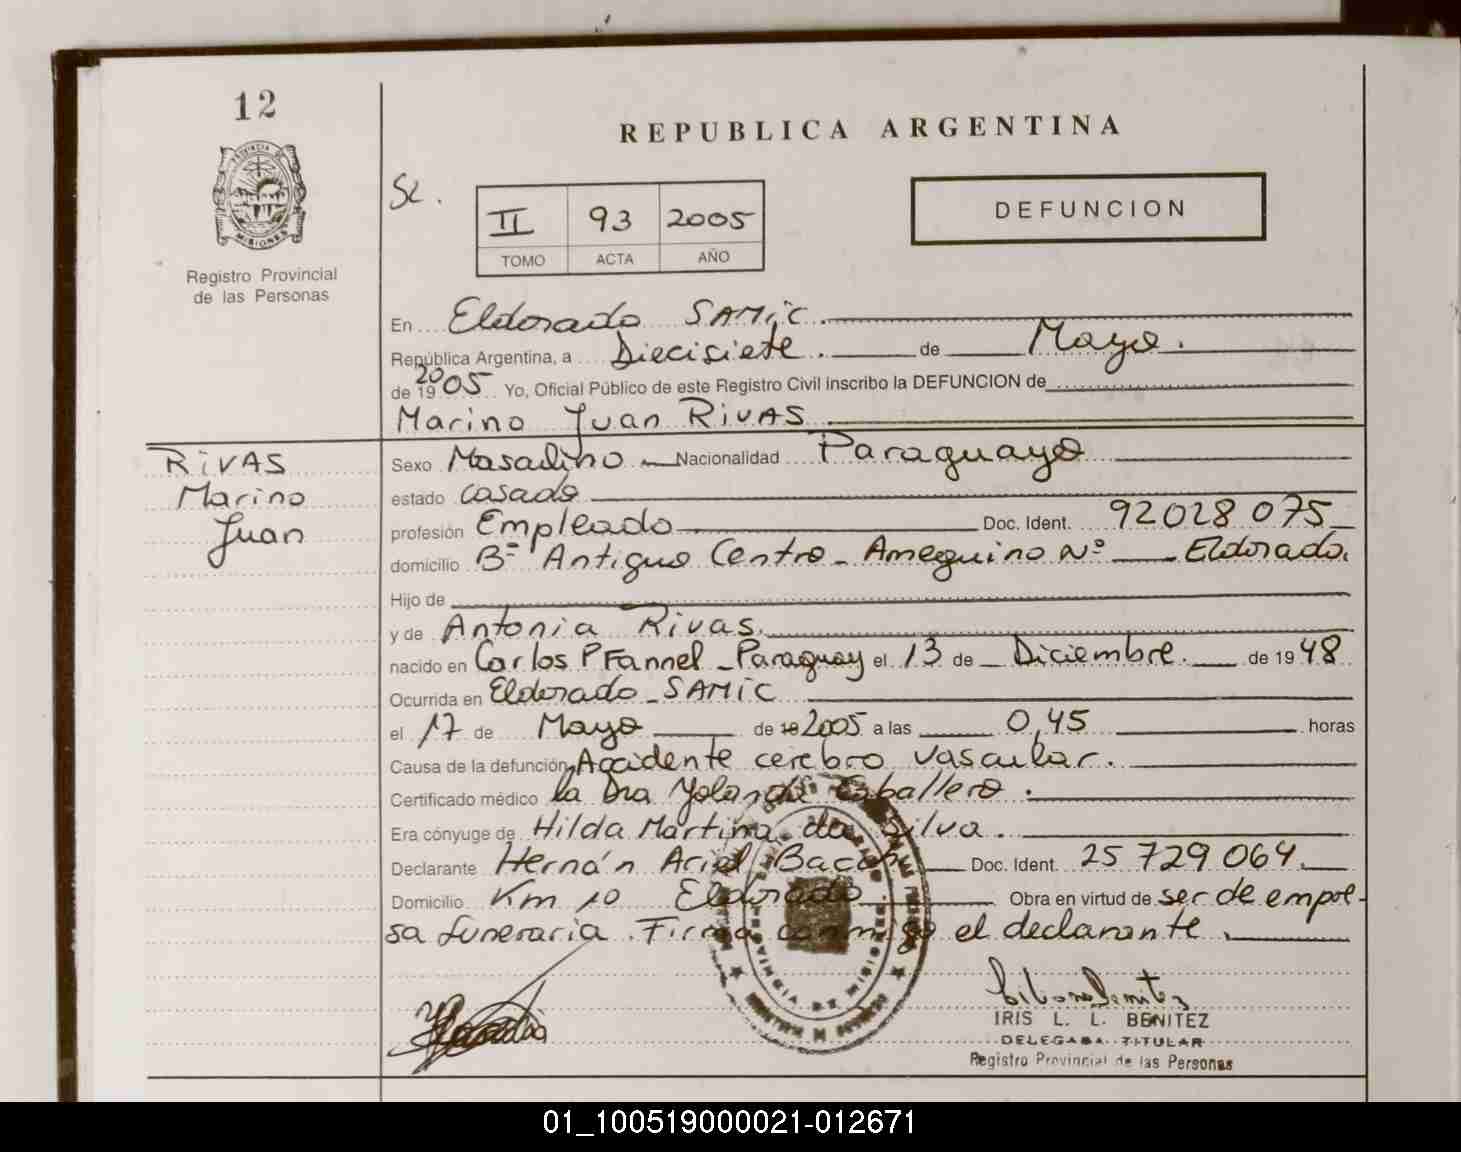 12
PROVINCIA DE
MISIONES
Registro Provincial
de las Personas
REPUBLICA ARGENTINA
Sc.
II 93 2005
TOMO ACTA AÑO
DEFUNCION
En Eldorado SAMic.
República Argentina, a Diecisiete. de Mayo.
de 19 2005 Yo, Oficial Público de este Registro Civil inscribo la DEFUNCION de
Marino Juan RIVAS
RIVAS
Marino
Juan
Sexo Masculino Nacionalidad Paraguayo
estado casado
profesión Empleado Doc. Ident. 92028075
domicilio Bº Antiguo Centro - Ameguino Nº Eldorado.
Hijo de
y de Antonia Rivas.
nacido en Carlos P Fannel - Paraguay el 13 de Diciembre. de 1948
Ocurrida en Eldorado - SAMIC
el 17 de Mayo de 2005 a las 0,45 horas
Causa de la defunción Accidente cerebro vascular.
Certificado médico la Dra Yolanda Caballero.
Era cónyuge de Hilda Martina da Silva.
Declarante Hernán Ariel Doc. Ident. 25 729 064.
Domicilio Km 10 Eldorado. Obra en virtud de ser de empre-
sa funeraria. Firma conmigo el declarante.
IRIS L. L. BENITEZ
DELEGADA TITULAR
Registro Provincial de las Personas
PROVINCIA DE MISIONES
01_100519000021-012671